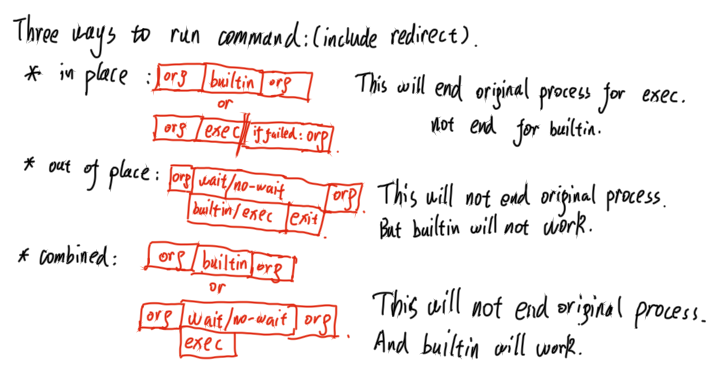 Three ways to run command: (include redirect).
* in place : org builtin org
or
org exec if failed: org
This will end original process for exec.
not end for builtin.
* out of place: org wait/no-wait org
builtin/exec exit
This will not end original process.
But builtin will not work.
* combined: org builtin org
or
org wait/no-wait org
exec
This will not end original process.
And builtin will work.